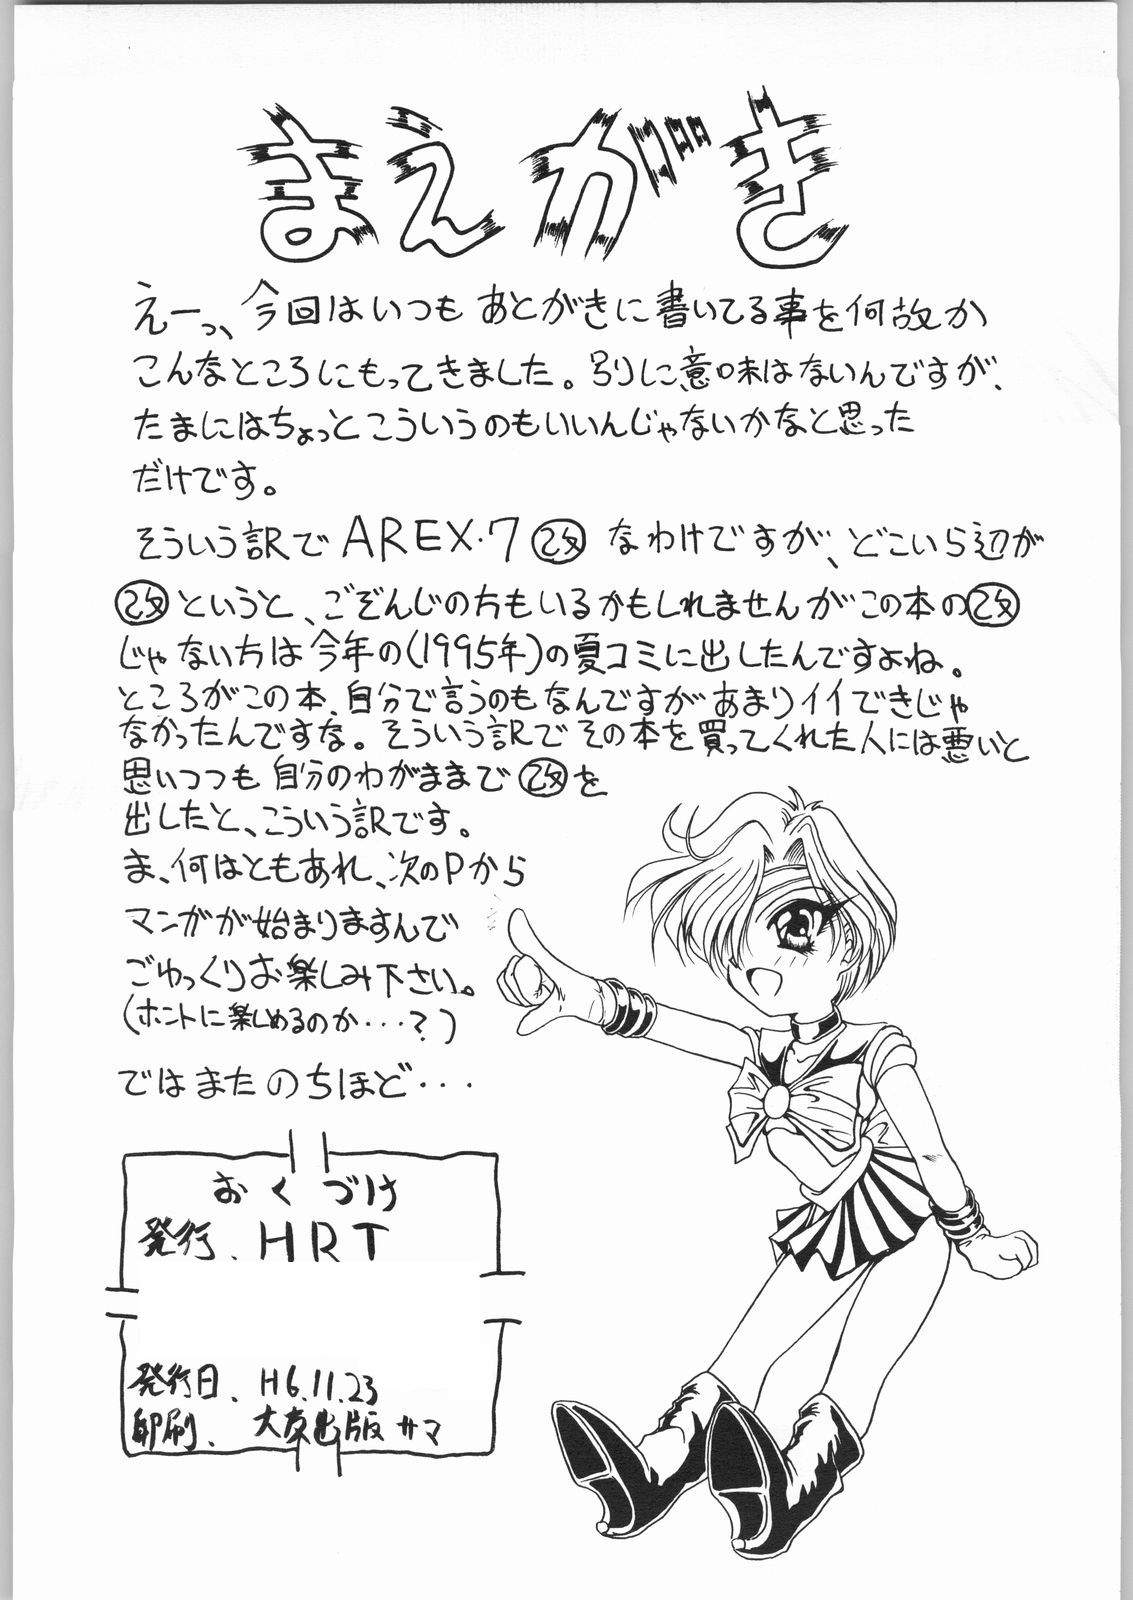 まえがき
えーっ、今回はいつもあとがきに書いてる事を何故か
こんなところにもってきました。別に意味はないんですが、
たまにはちょっとこういうのもいいんじゃないかなと思った
だけです。
そういう訳でAREX・7㊂改なわけですが、どこいら辺が
改というと、ごぞんじの方もいるかもしれませんがこの本の改
じゃない方は今年の(1995年)の夏コミに出したんですよね。
ところがこの本、自分で言うのもなんですがあまりイイできじゃ
なかったんですな。そういう訳でその本を買ってくれた人には悪いと
思いつつも自分のわがままで改を
出したと、こういう訳です。
ま、何はともあれ、次のPから
マンガが始まりますんで
ごゆっくりお楽しみ下さい。
(ホントに楽しめるのか・・・?)
ではまたのちほど・・・
おくづけ
発行.HRT
発行日.H6.11.23
印刷.大友出版サマ